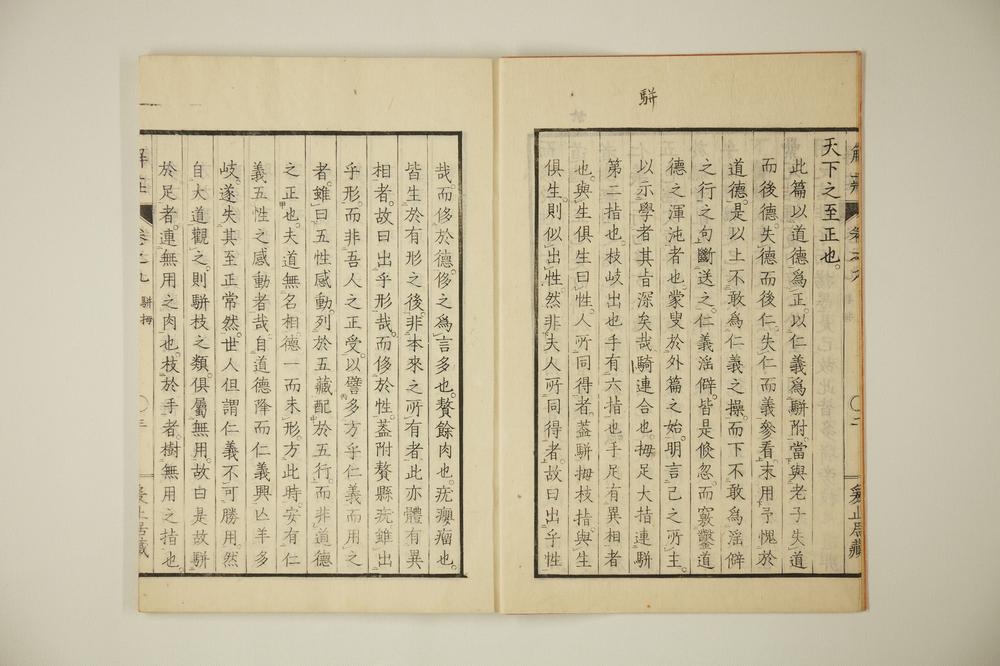 駢
天下之至正也。
此篇以道德爲正。以仁義爲駢附。當與老子失道
而後德。失德而後仁。失仁而義參看。末用予愧於
道德。是以上不敢爲仁義之操。而下不敢爲淫僻
之行之句斷送之。仁義淫僻。皆是倏忽。而竅鑿道
德之渾沌者也。蒙叟於外篇之始。明言己之所主。
以示學者其旨深矣哉。騎連合也。拇足大指連駢
第二指也。枝岐出也。手有六指也。手足有異相者
也。與生俱生曰性。人所同得者。蓋駢拇枝指。與生
俱生。則似出性。然非夫人所同得者。故曰出乎性
解莊 卷之九 〇二 爰止居藏
哉。而侈於德。侈之爲言多也。贅餘肉也。疣癭瘤也。
皆生於有形之後。非本來之所有者。此亦體有異
相者。故曰出乎形哉。而侈於性。蓋附贅縣疣。雖出
乎形。而非吾人之正受。以譬多方乎仁義而用之
者。雖曰五性感動。列於五藏。配於五行。而非道德
之正也。夫道無名相。德一而未形。方此時。安有仁
義五性之感動者哉。自道德降而仁義興。亾羊多
岐。遂失其至正常然。世人但謂仁義不可勝用。然
自大道觀之。則駢枝之類。俱屬無用。故曰是故駢
於足者。連無用之肉也。枝於手者。樹無用之指也。
解莊 卷之九 駢拇 〇三 爰止居藏